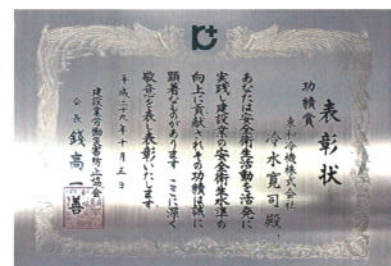 表彰状
功績賞
東和冷機株式会社
冷水寛司殿
あなたは安全衛生活動を活発に
実践し建設業の安全衛生水準の
向上に貢献されその功績は誠に
顕著なものがあります ここに深く
敬意を表し表彰いたします
平成二十九年十月三日
建設業労働災害防止協会
会長 錢高一善